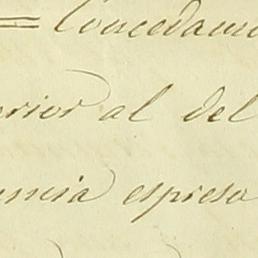 = Concedam
erior al del
uncia espresa